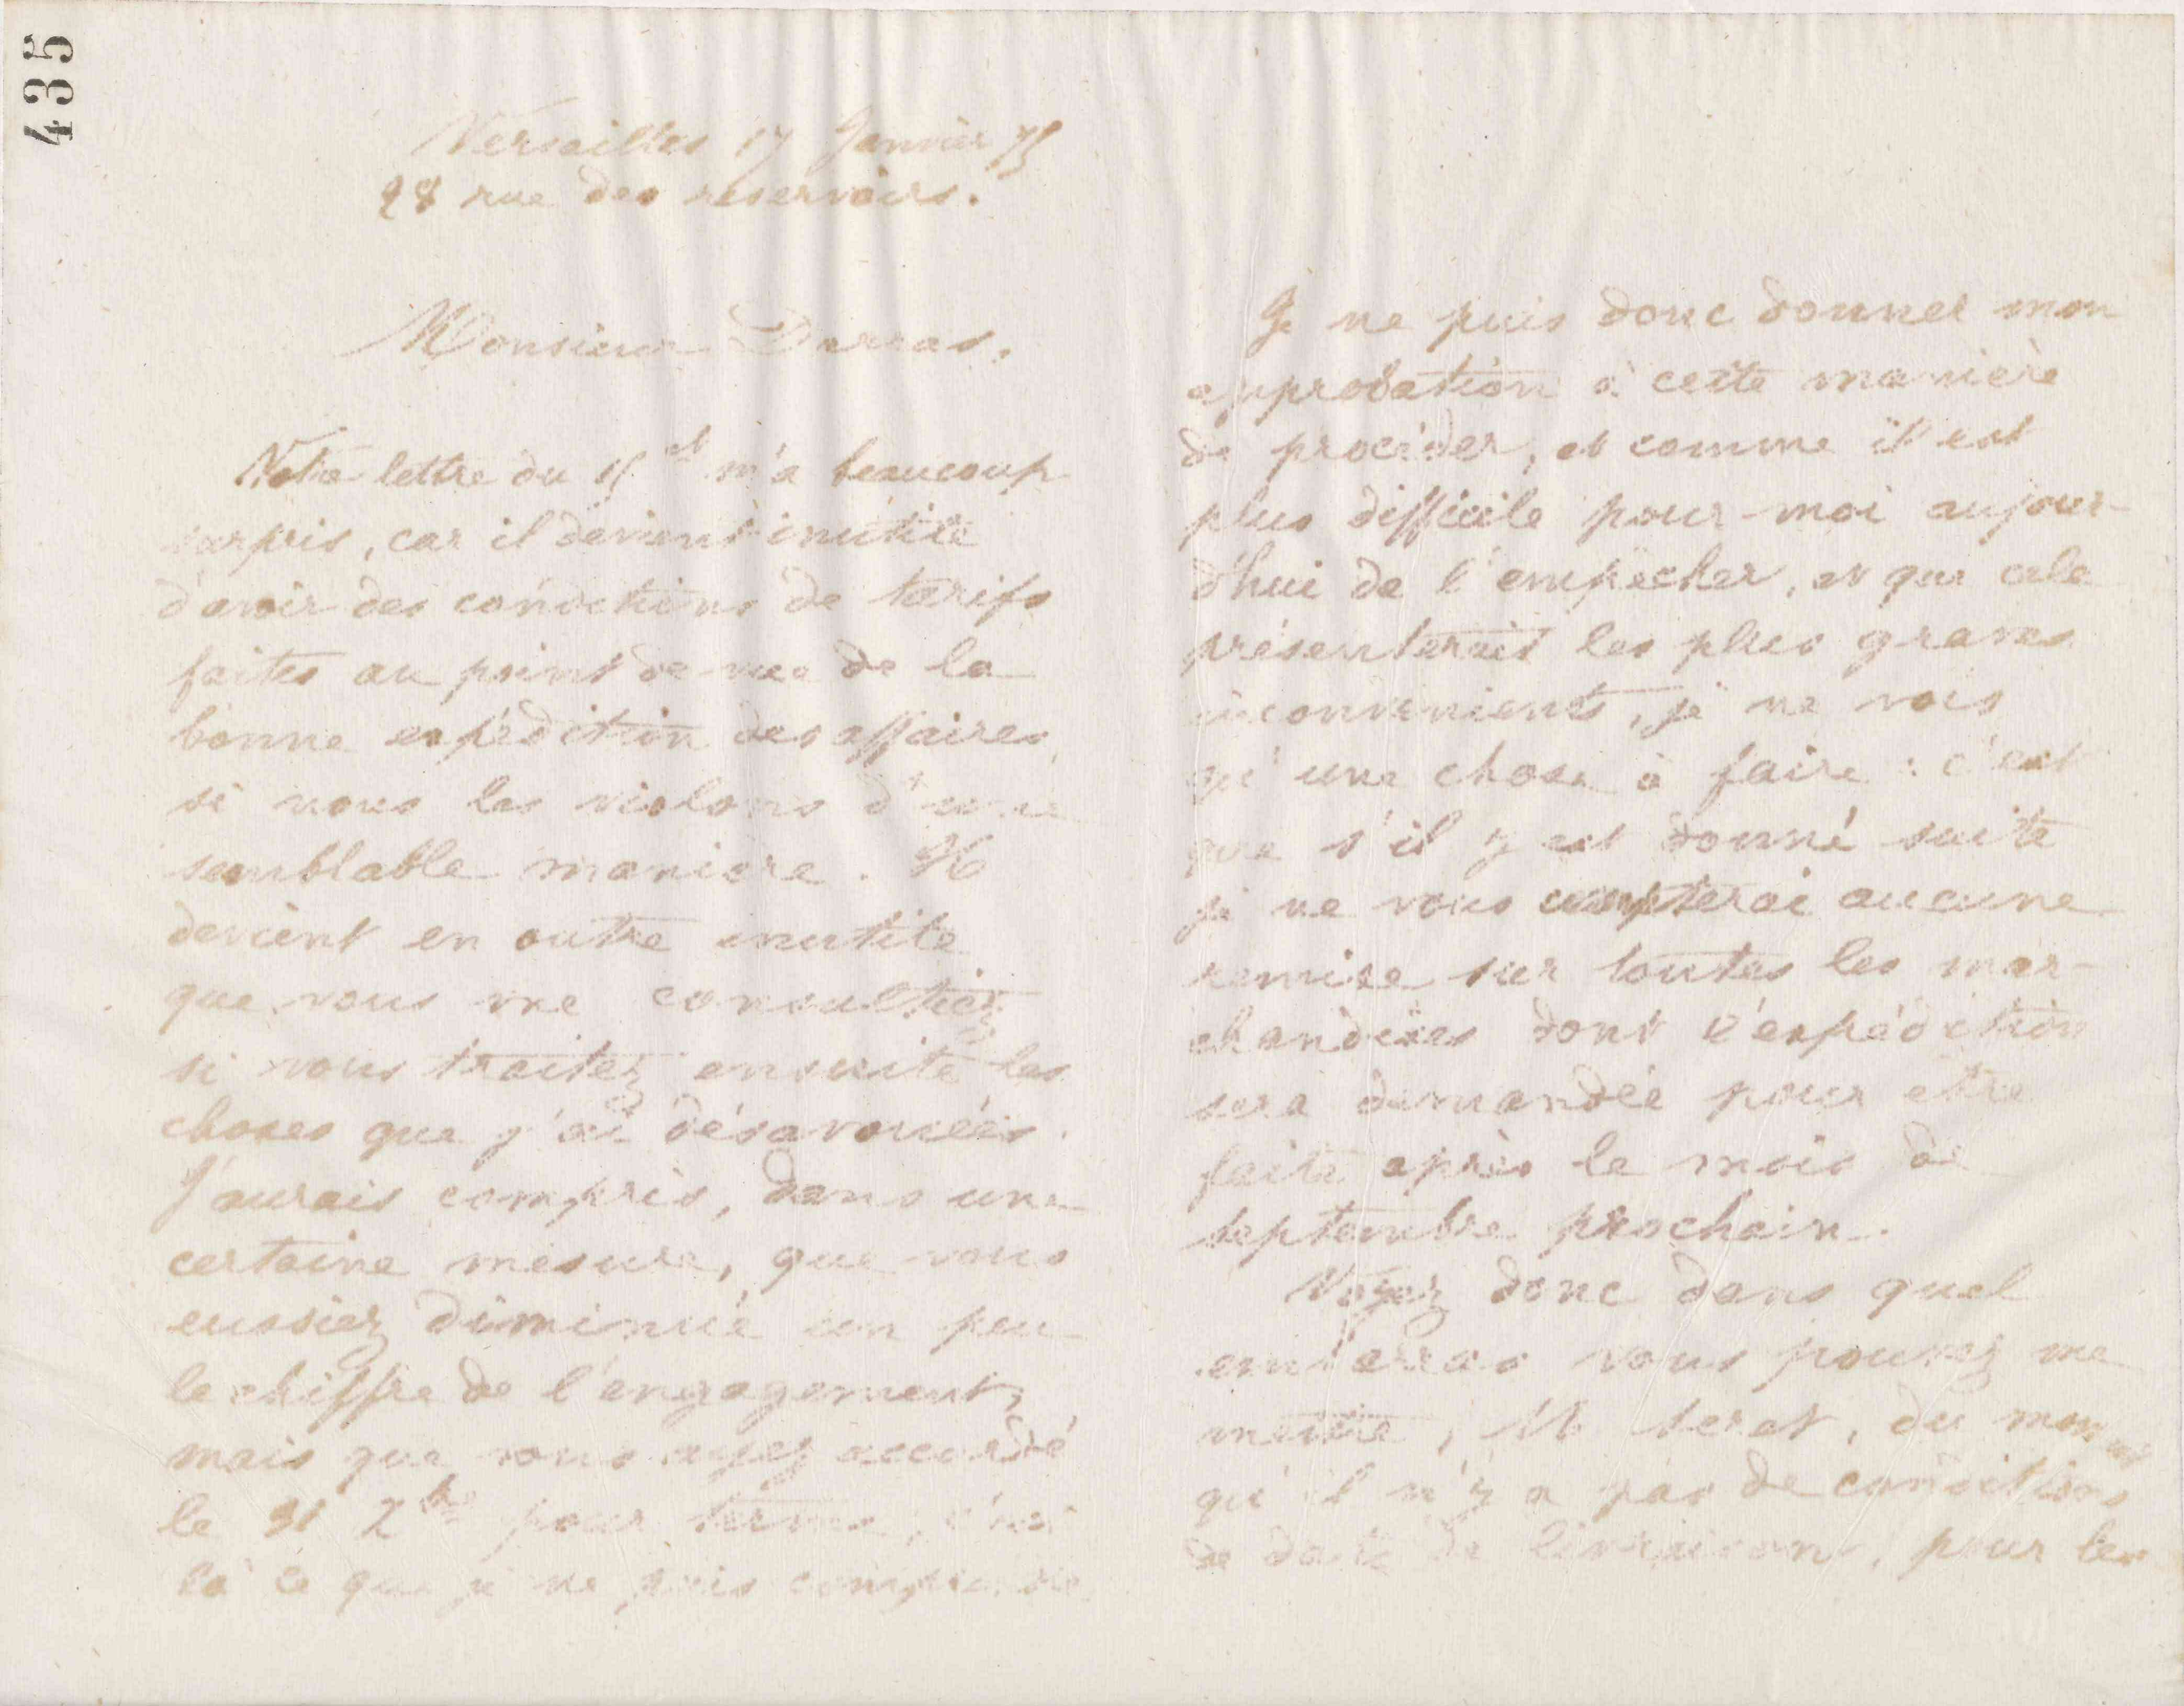 435
Versailles 17 Janvier 75
28 rue des reservoirs.
Monsieur Darras.
Votre lettre du 15 ct m'a beaucoup
surpris, car il devient inutile
d'avoir des conditions de tarifs
faites au point de vue de la
bonne expédition des affaires,
si nous les violons d'une
semblable manière. Il
devient en outre inutile
que vous me consultiez
si vous traitez ensuite les
choses que j'ai désavouées.
J'aurais compris, dans une
certaine mesure, que vous
eussiez diminué un peu
le chiffre de l'engagement,
mais que vous ayez accordé
le 31 Xbre pour terme, c'est
là ce que je ne puis comprendre.
Je ne puis donc donner mon
approbation à cette manière
de procéder, et comme il est
plus difficile pour moi aujour-
d'hui de l'empêcher, et que cela
présenterait les plus graves
inconvénients, je ne vois
qu'une chose à faire : c'est
que s'il y est donné suite
je ne vous compterai aucune
remise sur toutes les mar-
chandises dont l'expédition
sera demandée pour être
faite après le mois de
septembre prochain.
Voyez donc dans quel
embarras vous pouvez me
mettre, du moment
qu'il n'y a pas de conditions
de date de livraisons, pour les